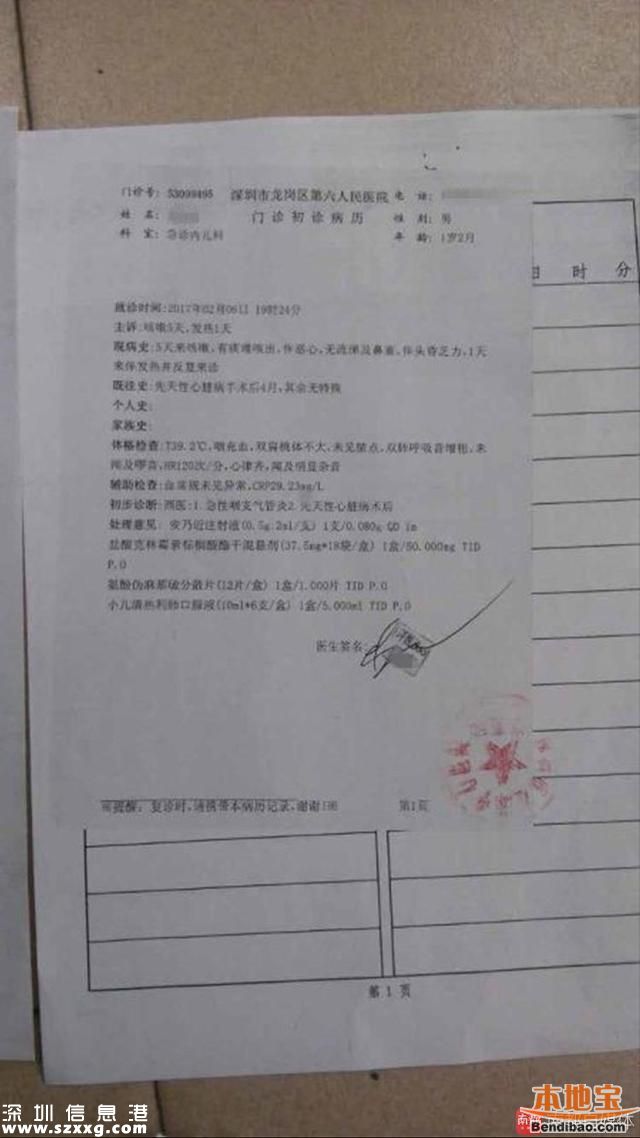 门诊号: 53099495 深圳市龙岗区第六人民医院 电 话:
姓 名: 门诊初诊病历 性 别: 男
科 室: 急诊内儿科 年 龄: 1岁2月
日 时 分
就诊时间:2017年02月06日 19时24分
主诉:咳嗽5天,发热1天
现病史:5天来咳嗽,有痰难咳出,伴恶心,无流涕及鼻塞,伴头昏乏力,1天
来伴发热并反复来诊
既往史:先天性心脏病手术后4月,其余无特殊
个人史:
家族史:
体格检查:T39.2℃,咽充血,双扁桃体不大,未见脓点,双肺呼吸音增粗,未
闻及啰音,HR120次/分,心律齐,闻及明显杂音
辅助检查:血常规未见异常,CRP29.23mg/L
初步诊断:西医:1.急性咽支气管炎2.先天性心脏病术后
处理意见: 安乃近注射液(0.5g:2ml/支) 1支/0.080g QD im
盐酸克林霉素棕榈酸酯干混悬剂(37.5mg*18袋/盒) 1盒/50.000mg TID
P.O
氨酚伪麻那敏分散片(12片/盒) 1盒/1.000片 TID P.O
小儿清热利肺口服液(10ml*6支/盒) 1盒/5.000ml TID P.O
医生签名:
提醒: 复诊时,请携带本病历记录,谢谢! 第1页
第 1 页
深圳信息港
www.szxxg.com
本地宝
Bendibao.com